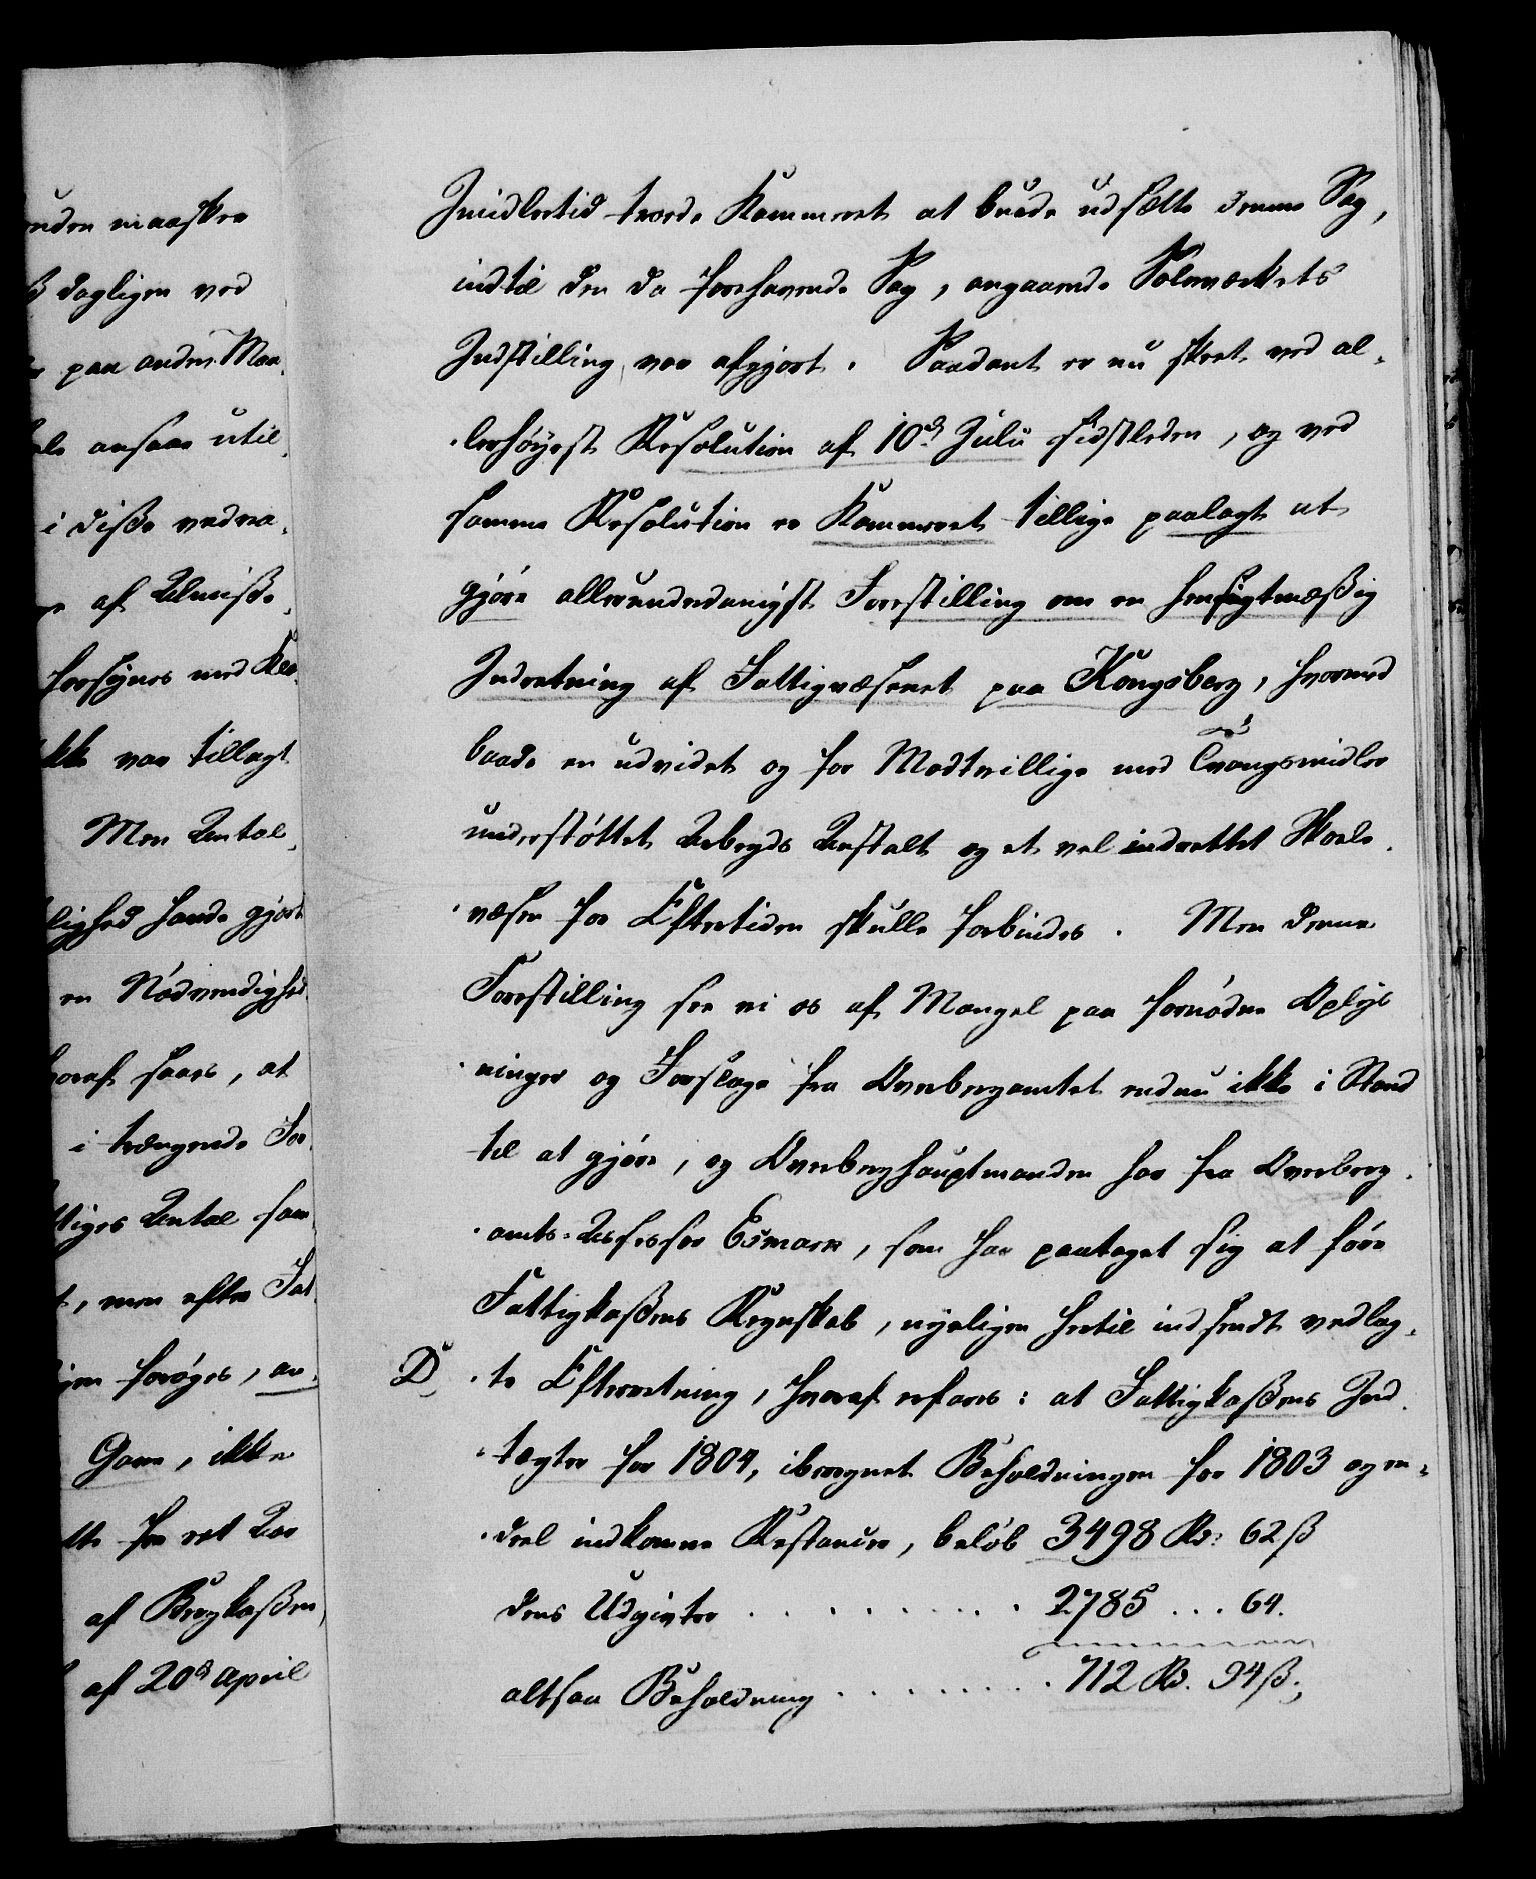 nden maaskee
ß dagligen ved
paa andre Maa-
ansaae util-
i disse vedva-
af Almisse-
forsynes med Klæ-
ikke var tillagt
Men Antal-
lighed havde gjort
en Nödvendighed
hvoraf saaes, at
i trængende For-
ttiges Antal sam-
t, men efter Fat-
forøges, an-
Gave, ikke
for ret Aar
af Bergkassen
af 20d April
Imidlertid troede Kammeret at burde udsætte denne Sag,
indtil den da forehavende Sag, angaaende Sölvværkets
Indstilling, var afgjort. Saadant er nu skeet ved al-
-lerhöyest Resolution af 10d Julii sidstleden, og ved
samme Resolution er Kammeret tillige paalagt at
gjöre allerunderdanigst Forestilling om en hensigtmæssig
Indretning af Fattigvæsenet paa Kongsberg, hvormed
baade en udvidet og for Modtvillige med Tvangsmidler
understöttet Arbeyds Anstalt og et vel indrettet Skole-
-væsen for Eftertiden skulle forbindes. Men denne
Forestilling see vi os af Mangel paa fornödne Oplys
-ninger og Forslage fra Overbergamtet endnu ikke i Stand
til at gjöre, og Overberghauptmanden har fra Overberg-
-amts-Assessor Esmark, som har paataget sig at före
Fattigkassens Regnskab, nyeligen hertil indsendt vedlag-
D. -te Efterretning, hvoraf erfares: at Fattigkassens Ind-
-tægter for 1804, iberegnet Beholdningen for 1803 og en-
-deel indkomne Restancer, belöb 3498 Rd. 62 ß
dens Udgivter . . . . . . . . . 2785 . . . 64.
altsaa Beholdning . . . . . . . . 712 Rd. 94 ß;